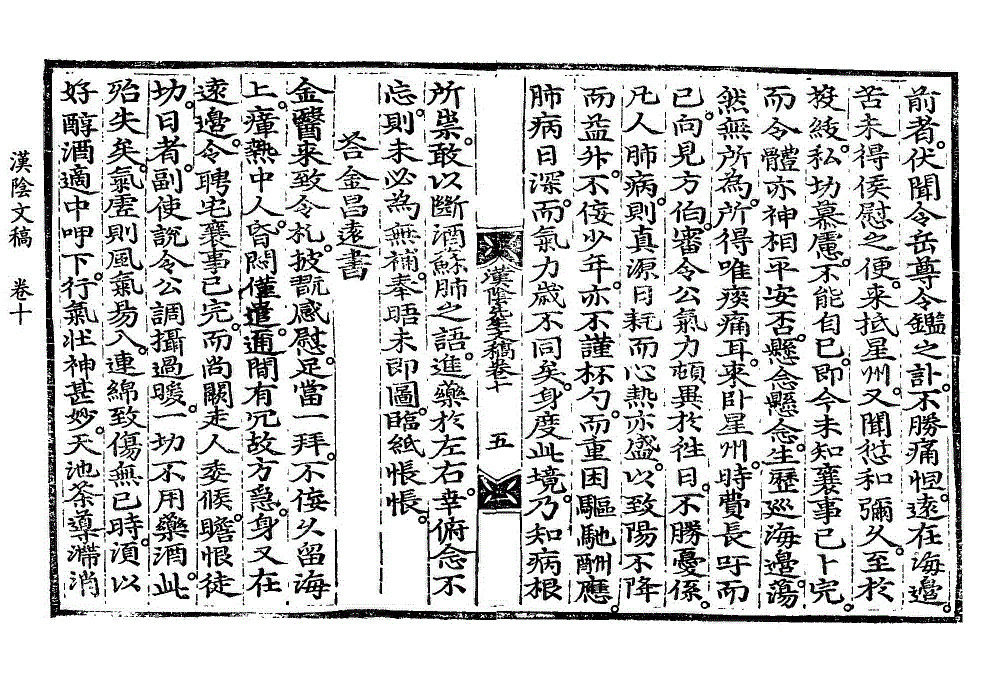 前者。伏聞令岳尊令鑑之訃。不勝痛怛。遠在海邊。
苦未得俟慰之便。來抵星州。又聞愆和彌久。至於
投綏。私切慕慮。不能自已。即今未知襄事已卜完。
而令體亦神相平安否。懸念懸念。生歷巡海邊。蕩
然無所為。所得唯痰痛耳。來臥星州。時費長吁而
已。向見方伯。審令公氣力頓異於往日。不勝憂係。
凡人肺病。則真源日耗。而心熱亦盛。以致陽不降
而益升。不佞少年。亦不謹杯勺。而重困驅馳酬應。
肺病日深。而氣力歲不同矣。身度此境。乃知病根
漢陰先生文稿卷十
五
所祟。敢以斷酒蘇肺之語。進藥於左右。幸俯念不
忘。則未必為無補。奉晤未即圖。臨紙悵悵。
答金昌遠書
金醫來致令札。披翫感慰。足當一拜。不佞久留海
上。瘴熱中人。昏悶僅遣。邇間有冗故方急。身又在
遠邊。令聘宅襄事已完。而尚闕走人委候。瞻恨徒
切。日者。副使說令公調攝過暖。一切不用藥酒。此
殆失矣。氣虛則風氣易入。連綿致傷無已時。須以
好醇酒適中呷下。行氣壯神甚妙。天池茶導滯消
漢陰文稿 卷十